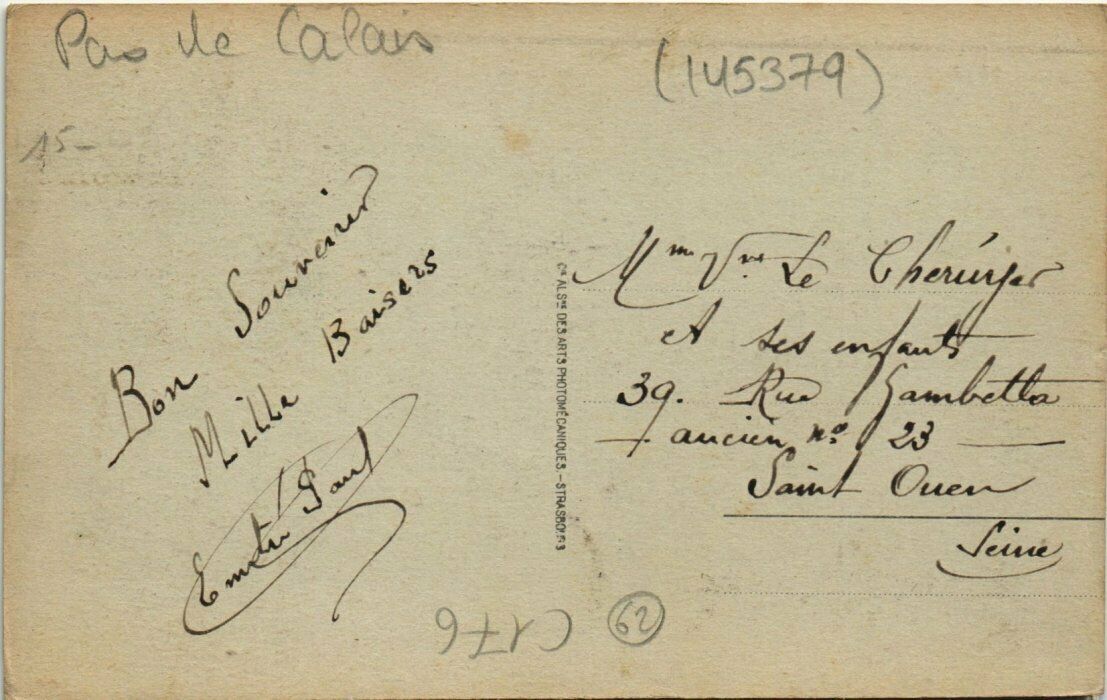 Pas de Calais
(145379)
15-
Bon Souvenir
Mille Baisers
Paul
Mme Vve Le Cherúyer
et ses enfants
39. Rue Gambetta
ancien no 23
Saint Ouen
Seine
CIE ALSNE DES ARTS PHOTOMÉCANIQUES. - STRASBOURG
62